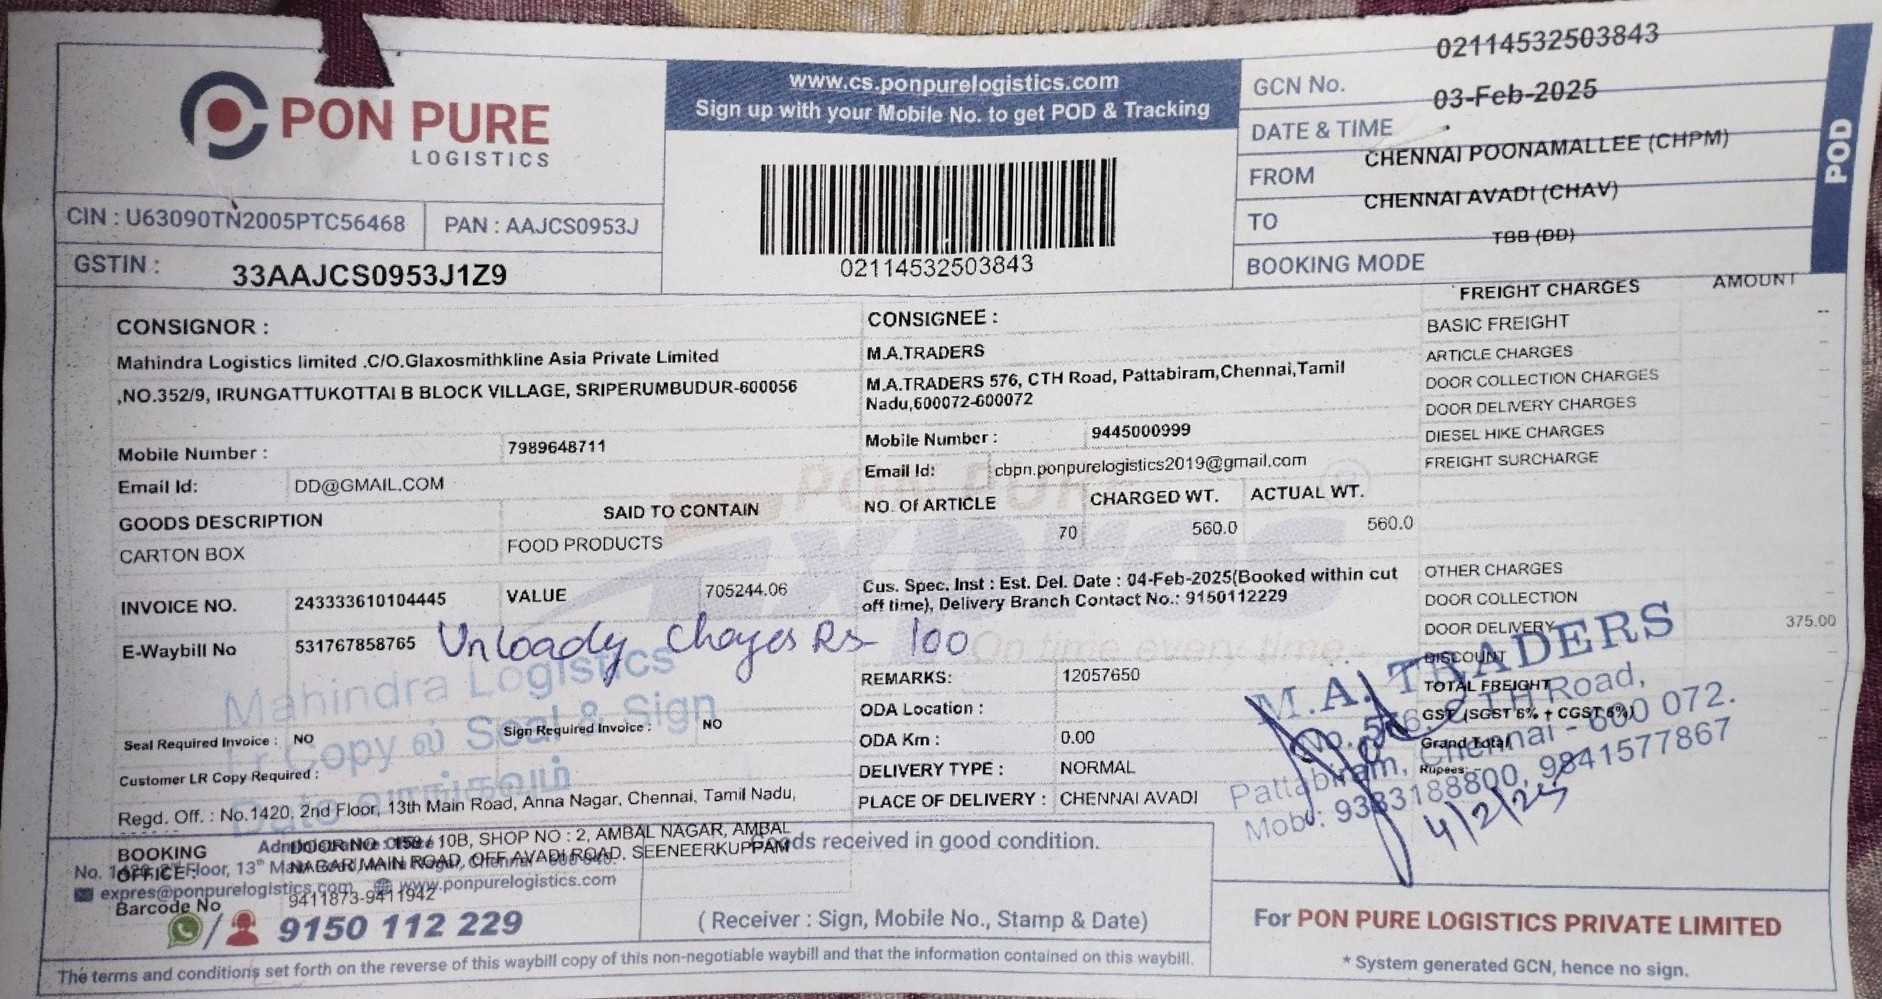 PON PURE
LOGISTICS
CIN : U63090TN2005PTC56468
PAN : AAJCS0953J
GSTIN : 33AAJCS0953J1Z9
www.cs.ponpurelogistics.com
Sign up with your Mobile No. to get POD & Tracking
02114532503843
GCN No. 02114532503843
DATE & TIME 03-Feb-2025
FROM CHENNAI POONAMALLEE (CHPM)
TO CHENNAI AVADI (CHAV)
BOOKING MODE TBB (DD)
POD
CONSIGNOR :
Mahindra Logistics limited .C/O.Glaxosmithkline Asia Private Limited
,NO.352/9, IRUNGATTUKOTTAI B BLOCK VILLAGE, SRIPERUMBUDUR-600056
Mobile Number : 7989648711
Email Id: DD@GMAIL.COM
GOODS DESCRIPTION SAID TO CONTAIN
CARTON BOX FOOD PRODUCTS
INVOICE NO. 243333610104445 VALUE 705244.06
E-Waybill No 531767858765
Unloady Chayes Rs 100
Mahindra Logistics
Lr Copy ல் Seal & Sign
Seal Required Invoice : NO Sign Required Invoice : NO
Customer LR Copy Required :
Regd. Off. : No.1420, 2nd Floor, 13th Main Road, Anna Nagar, Chennai, Tamil Nadu,
CONSIGNEE :
M.A.TRADERS
M.A.TRADERS 576, CTH Road, Pattabiram,Chennai,Tamil
Nadu,600072-600072
Mobile Number : 9445000999
Email Id: cbpn.ponpurelogistics2019@gmail.com
NO. Of ARTICLE CHARGED WT. ACTUAL WT.
70 560.0 560.0
PON PURE
Expres
On time every time
Cus. Spec. Inst : Est. Del. Date : 04-Feb-2025(Booked within cut
off time), Delivery Branch Contact No.: 9150112229
REMARKS: 12057650
ODA Location :
ODA Km : 0.00
DELIVERY TYPE : NORMAL
PLACE OF DELIVERY : CHENNAI AVADI
FREIGHT CHARGES AMOUNT
BASIC FREIGHT --
ARTICLE CHARGES
DOOR COLLECTION CHARGES
DOOR DELIVERY CHARGES
DIESEL HIKE CHARGES
FREIGHT SURCHARGE
OTHER CHARGES
DOOR COLLECTION
DOOR DELIVERY 375.00
DISCOUNT
TOTAL FREIGHT
GST (SGST 6% + CGST 6%)
Grand Total
Rupees:
M.A. TRADERS
No. 576, CTH Road,
Pattabiram, Chennai - 600 072.
Mob: 9383188800, 9841577867
4/2/25
BOOKING
OFFICE:
DOOR NO : 10B, SHOP NO : 2, AMBAL NAGAR, AMBAL
NAGAR MAIN ROAD, OFF AVADI ROAD, SEENEERKUPPAM
expres@ponpurelogistics.com www.ponpurelogistics.com
Barcode No 9411873-9411942
9150 112 229
Goods received in good condition.
( Receiver : Sign, Mobile No., Stamp & Date)
For PON PURE LOGISTICS PRIVATE LIMITED
* System generated GCN, hence no sign.
The terms and conditions set forth on the reverse of this waybill copy of this non-negotiable waybill and that the information contained on this waybill.